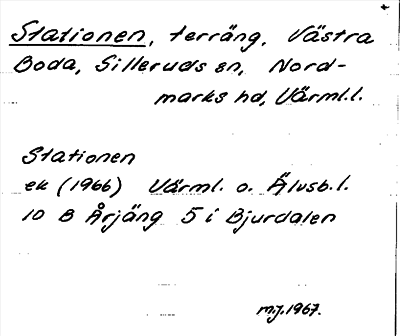 Stationen, terräng, Västra
Boda, Silleruds sn, Nord-
marks hd, Värml.l.
Stationen
ek (1966) Värml. o. Älvsb.l.
10 B Årjäng 5 i Bjurdalen
m.j.1967.